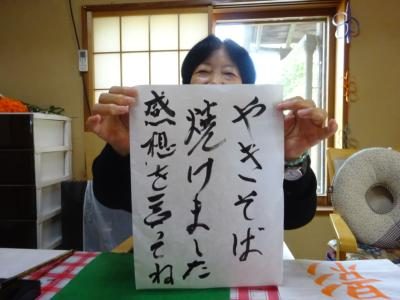 やきそば
焼けました
感想を言ってね